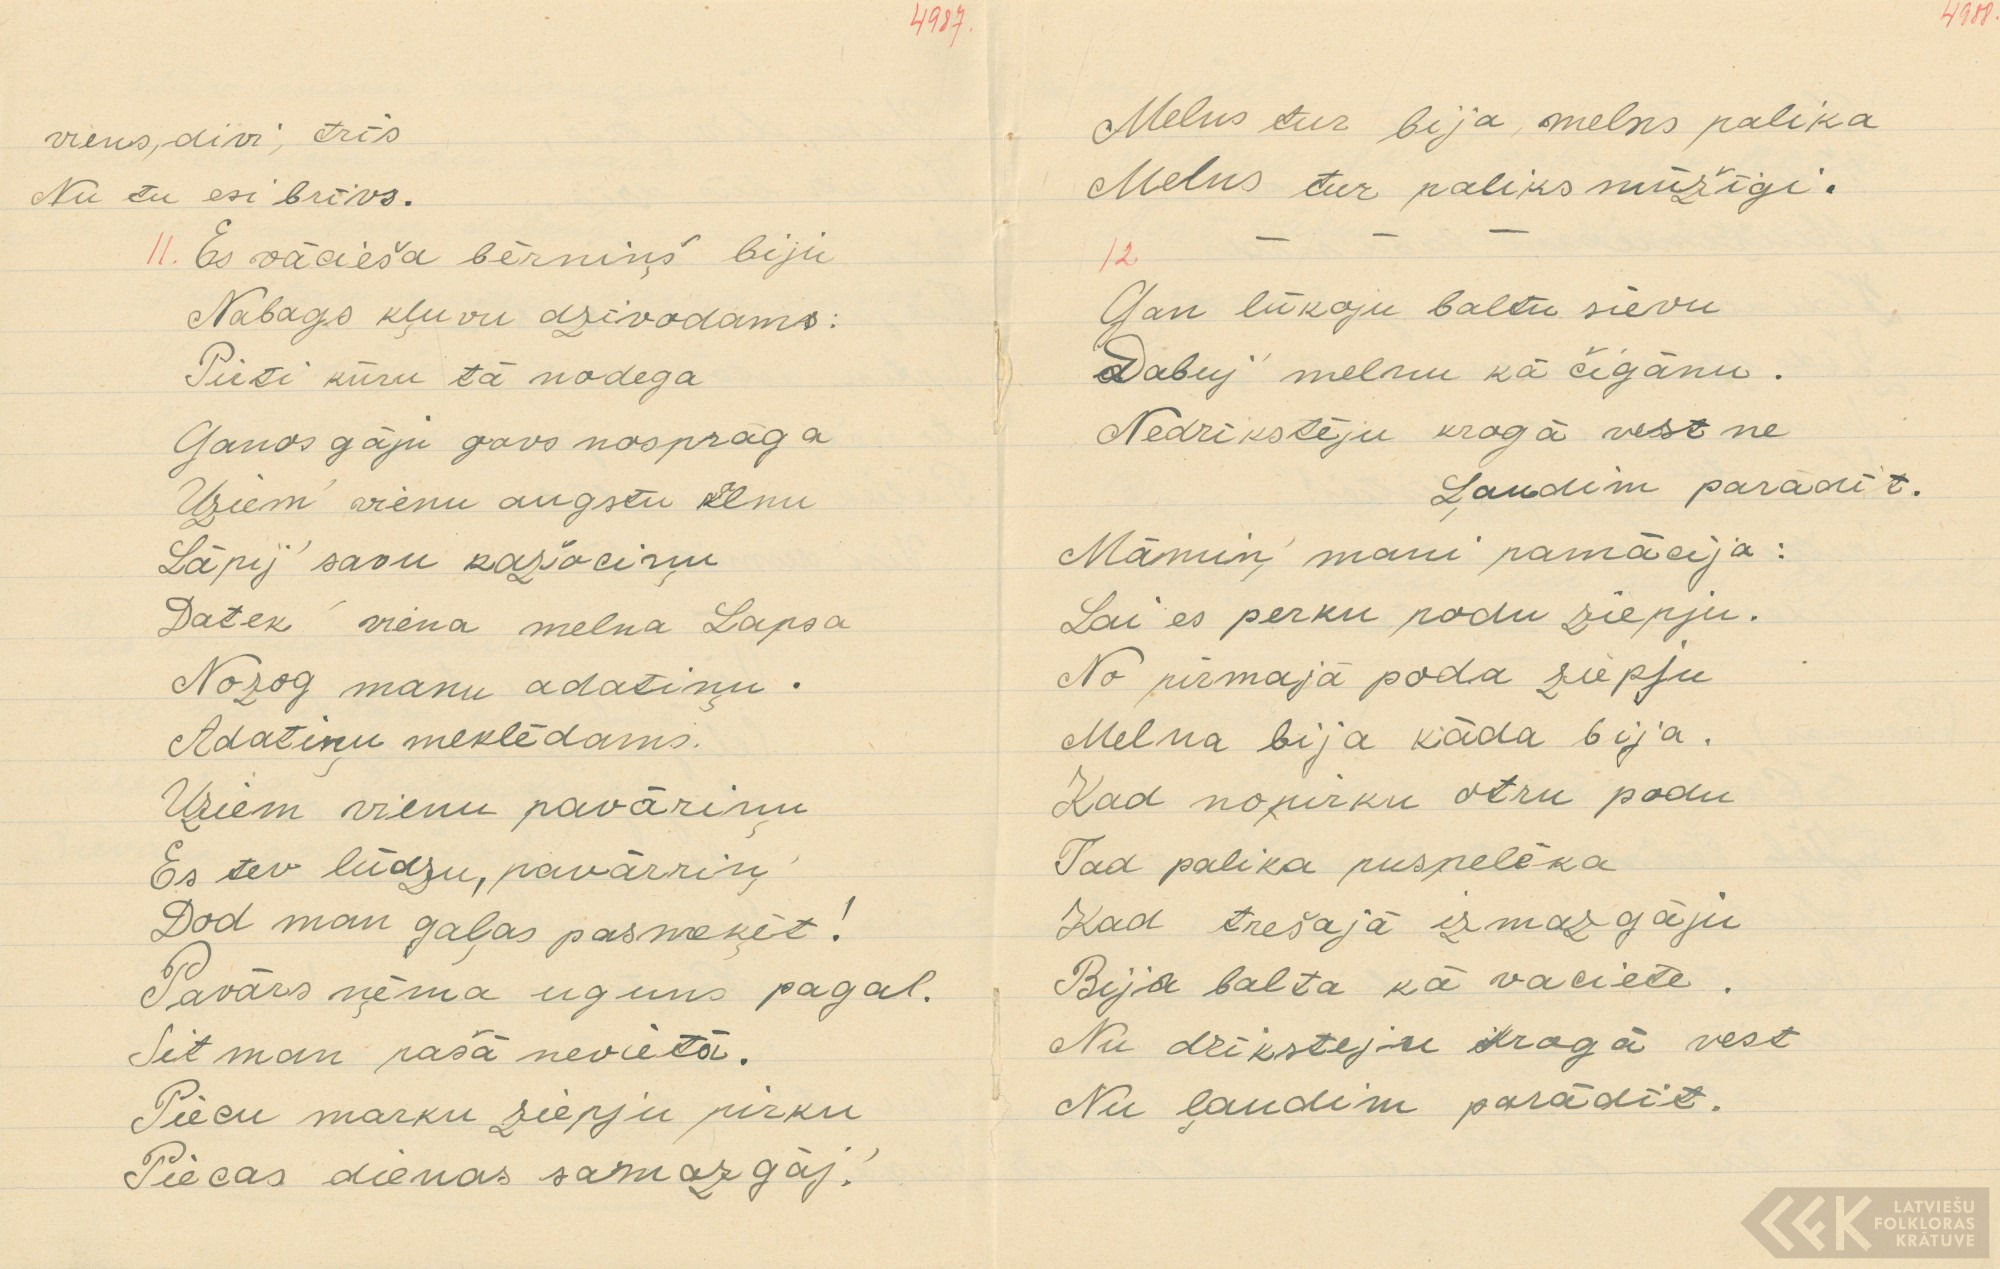 4987.
viens, divi, trīs
Nu tu esi brīvs.
11. Es vācieša bērniņš biju
Nabags kļuvu dzīvodams:
Pirti kūru tā nodega
Ganos gāju govs nosprāga
Uziem' vienu augstu kalnu
Lāpij' savu kažociņu
Datek' viena melna Lapsa
Nozog manu adatiņu.
Adatiņu meklēdams.
Uziem vienu pavāriņu
Es tev lūdzu, pavārriņ'
Dod man gaļas pasmeķēt!
Pavārs ņēma uguns pagal.
Sit man pašā nevietā.
Piecu marku ziepju pirku
Piecas dienas samazgāj'.
4988.
Melns tur bija, melns palika
Melns tur paliks mūžīgi.
— — —
12
Gan lūkoju baltu sievu
Dabuj' melnu kā čigānu.
Nedrīkstēju krogā vest ne
Ļaudim parādīt.
Māmiņ' mani pamācija:
Lai es perku podu ziepju.
No pirmajā poda ziepju
Melna bija kāda bija.
Kad nopirku otru podu
Tad palika puspelēka
Kad trešajā izmazgāju
Bija balta kā vaciete.
Nu drīksteju krogā vest
Nu ļaudim parādīt.
LATVIEŠU
FOLKLORAS
KRĀTUVE